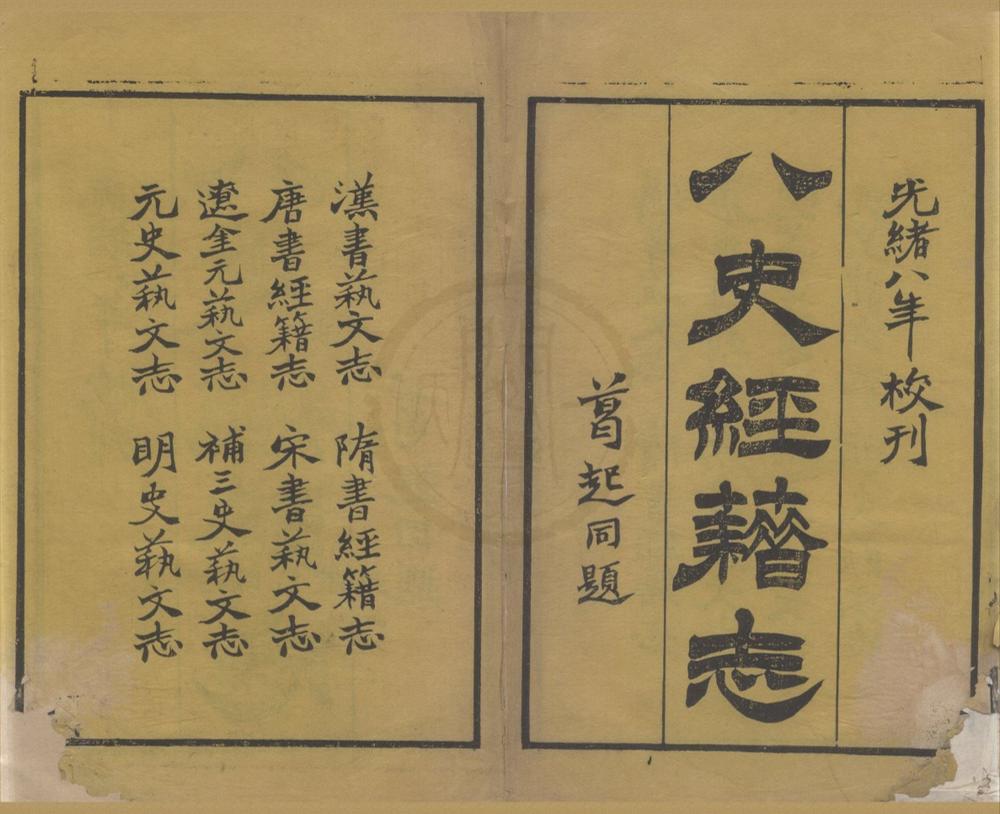 光緒八年校刊
八史經籍志
葛起同題
漢書藝文志 隋書經籍志
唐書經籍志 宋書藝文志
遼金元藝文志 補三史藝文志
元史藝文志 明史藝文志